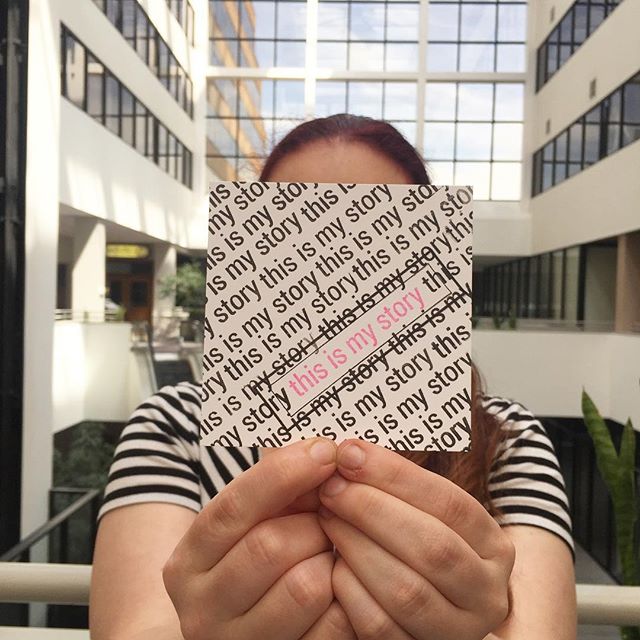 story
my story this is
is is my story this is my story
is my story this is my story
story this is my story this is my story
is my story this is my story this is my story the
story this is my story this is my story
is is my story this is my story this
my story this is my story this is my
this is my story this is my story
this is my story this
this is my story
this is my
story